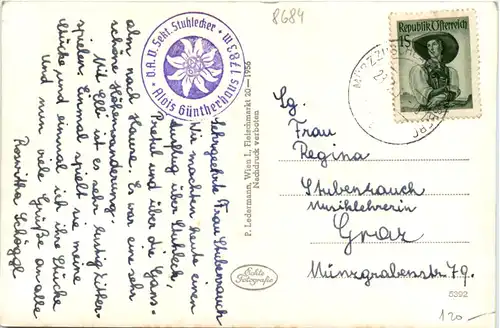 8684
Ö.A.V. Sekt. Stuhlecker
Alois Güntherhaus 1783 m
Republik Österreich
1 S
Sg.
Frau
Regina
Stubenrauch
Musiklehrerin
Graz
Münzgrabenstr. 79.
Sehrgeehrte Frau Stubenrauch
Wir machten heute einen
Ausflug über Stuhleck,
Pretul und über die Gans-
alm nach Hause. Es war eine sehr
schöne Höhenwanderung.
Mit Elli ist es sehr lustig Zither-
spielen. Einmal spielt sie meine
Stücke und einmal ich ihre Stücke
Und nun viele Grüße an alle
Roswitha Schöggl
P. Ledermann, Wien I., Fleischmarkt 20—1956
Nachdruck verboten
Echte
Fotografie
5392
120.-